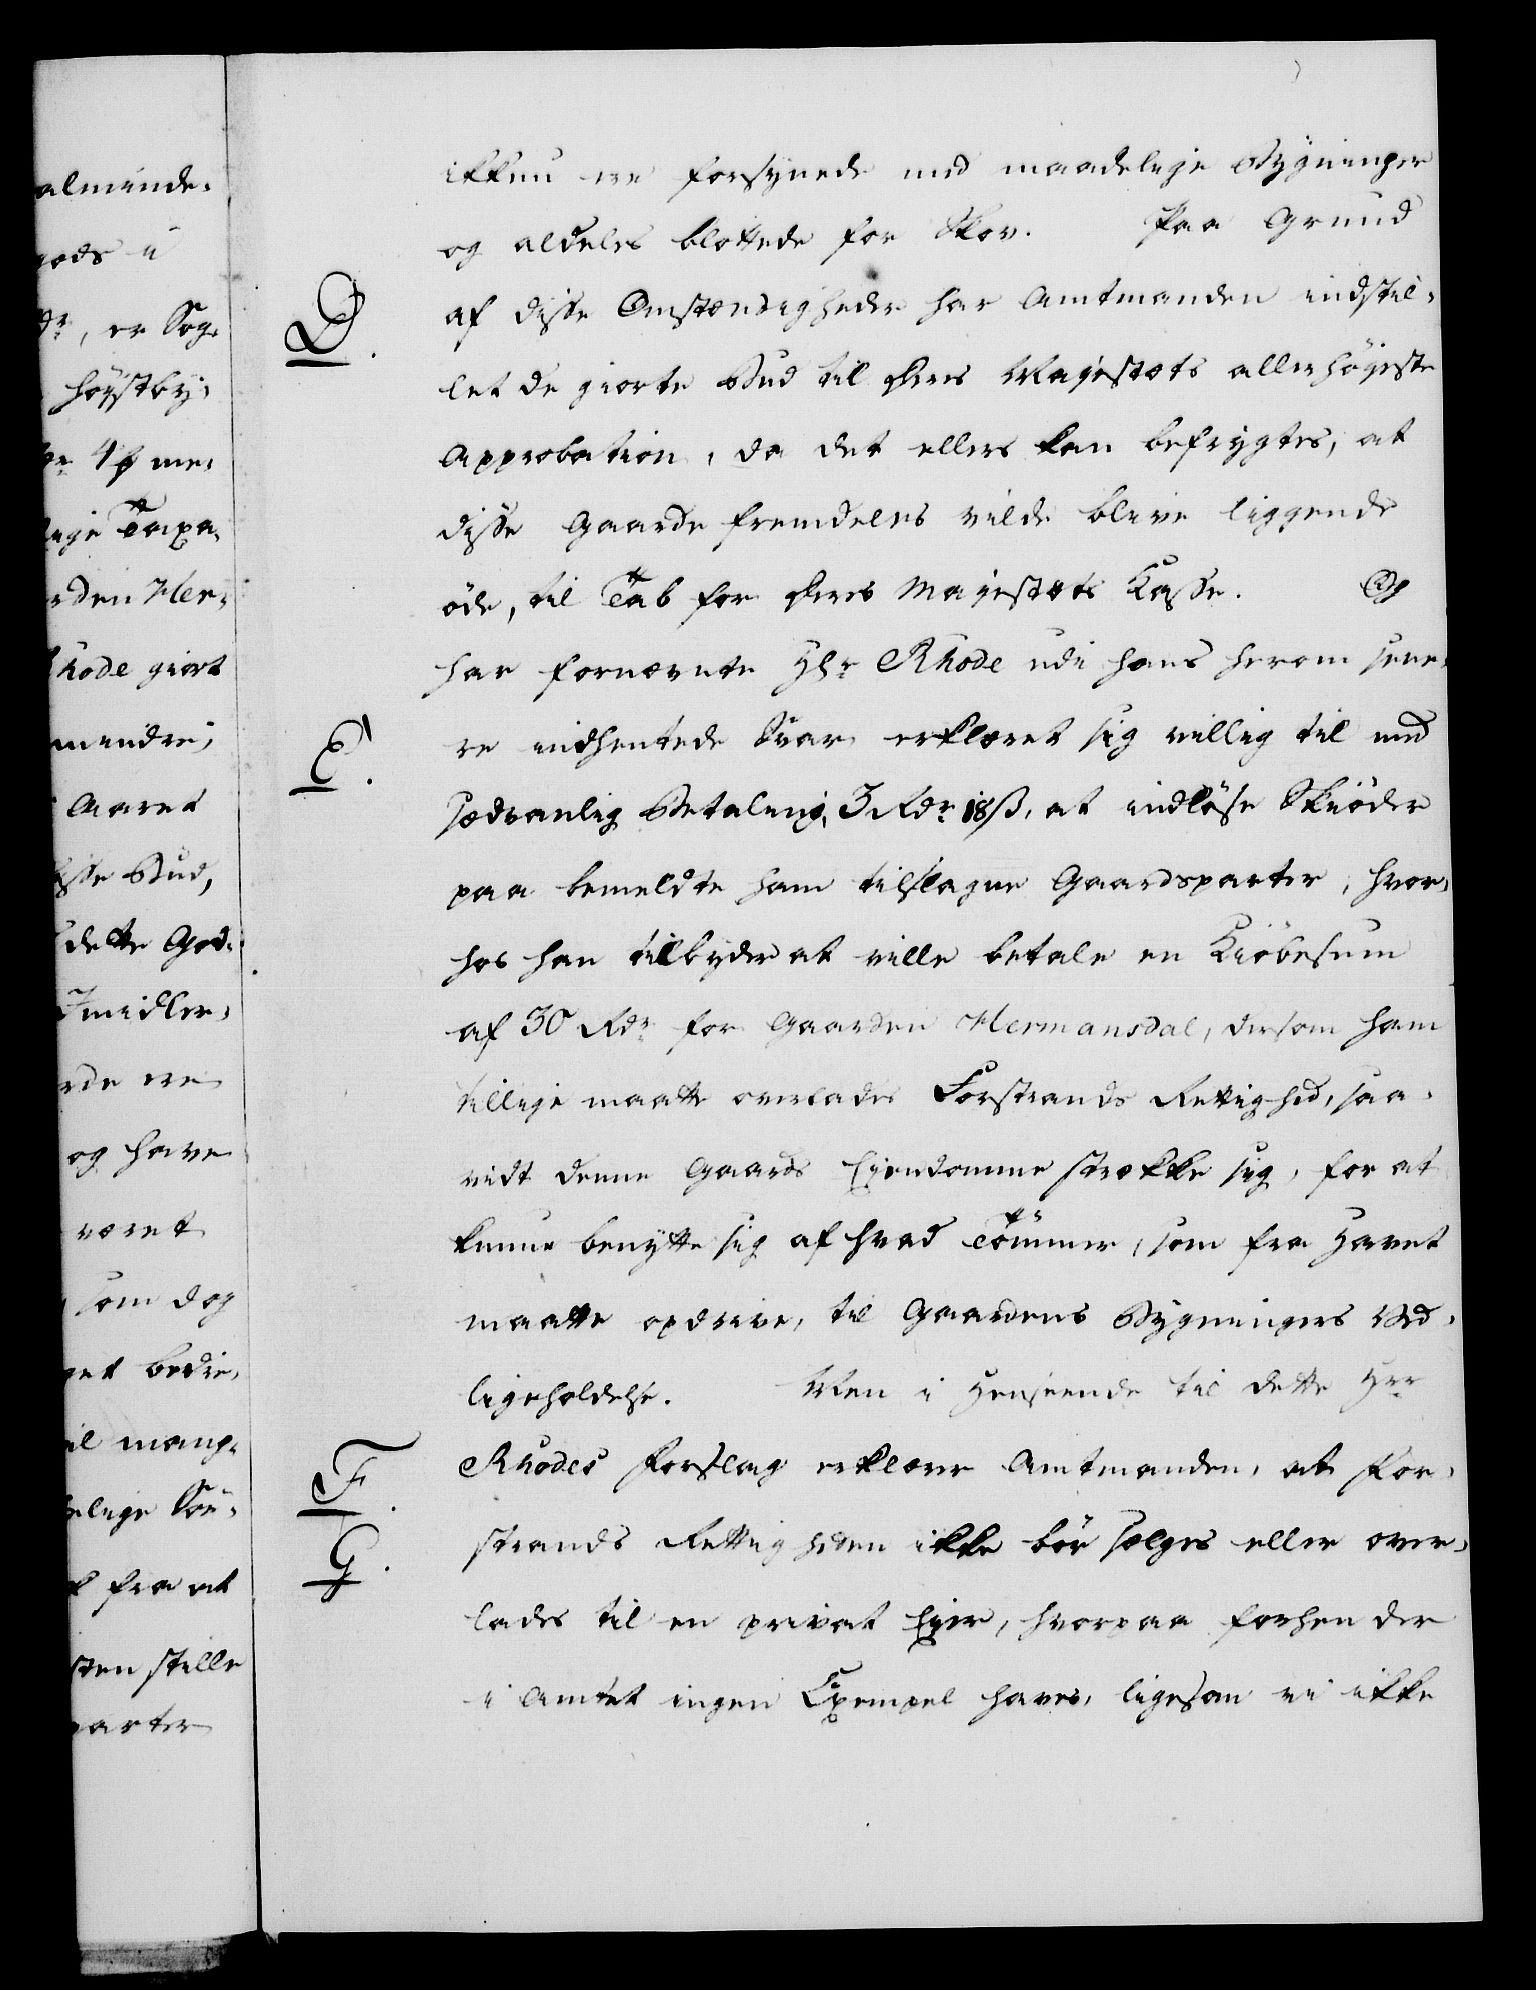 alminde-
gods i
dr, er Sog-
höystby-
4 ß me-
lige Taxa-
rden Her-
hode giort
mindre,
Aaret
isse Bud,
dette God-
Imidler-
rde ere
og have
været
som dog
get bedre,
il mang-
elige Sö-
fra at
sten stille
parter
ikkun ere forsynede med maadelige Bygninger
og aldeles blottede for Skov. Paa Grund
D. af disse Omstændigheder har Amtmanden indstil-
let de giorte Bud til Deres Majestæts allerhöyeste
Approbation, da det ellers kan befrygtes, at
disse Gaarde fremdeles vilde blive liggende
öde, til Tab for Deres Majestæts Kasse. Og
har fornævnte Hr Rhode udi hans herom sene-
E. re indhentede Svar erklæret sig villig til med
sædvanlig Betaling, 3 Rdr 18 ß, at indlöse Skiöder
paa bemeldte ham tilslagne Gaardsparter, hvor-
hos han tilbyder at ville betale en Kiöbesum
af 30 Rdr for Gaarden Hermansdal, dersom ham
tillige maatte overlades Forstrands Rettighed, saa-
vidt denne Gaards Eiendomme strække sig, for at
kunne benytte sig af hvad Tömmer, som fra Havet
maatte opdrive, til Gaardens Bygningers Ved-
ligeholdelse. Men i Henseende til dette Hrr
F. Rhodes Forslag erklærer Amtmanden, at For-
G. strands Rettigheden ikke bör sælges eller over-
lades til en privat Eier, hvorpaa forhen der
i Amtet ingen Exempel haves, ligesom vi ikke